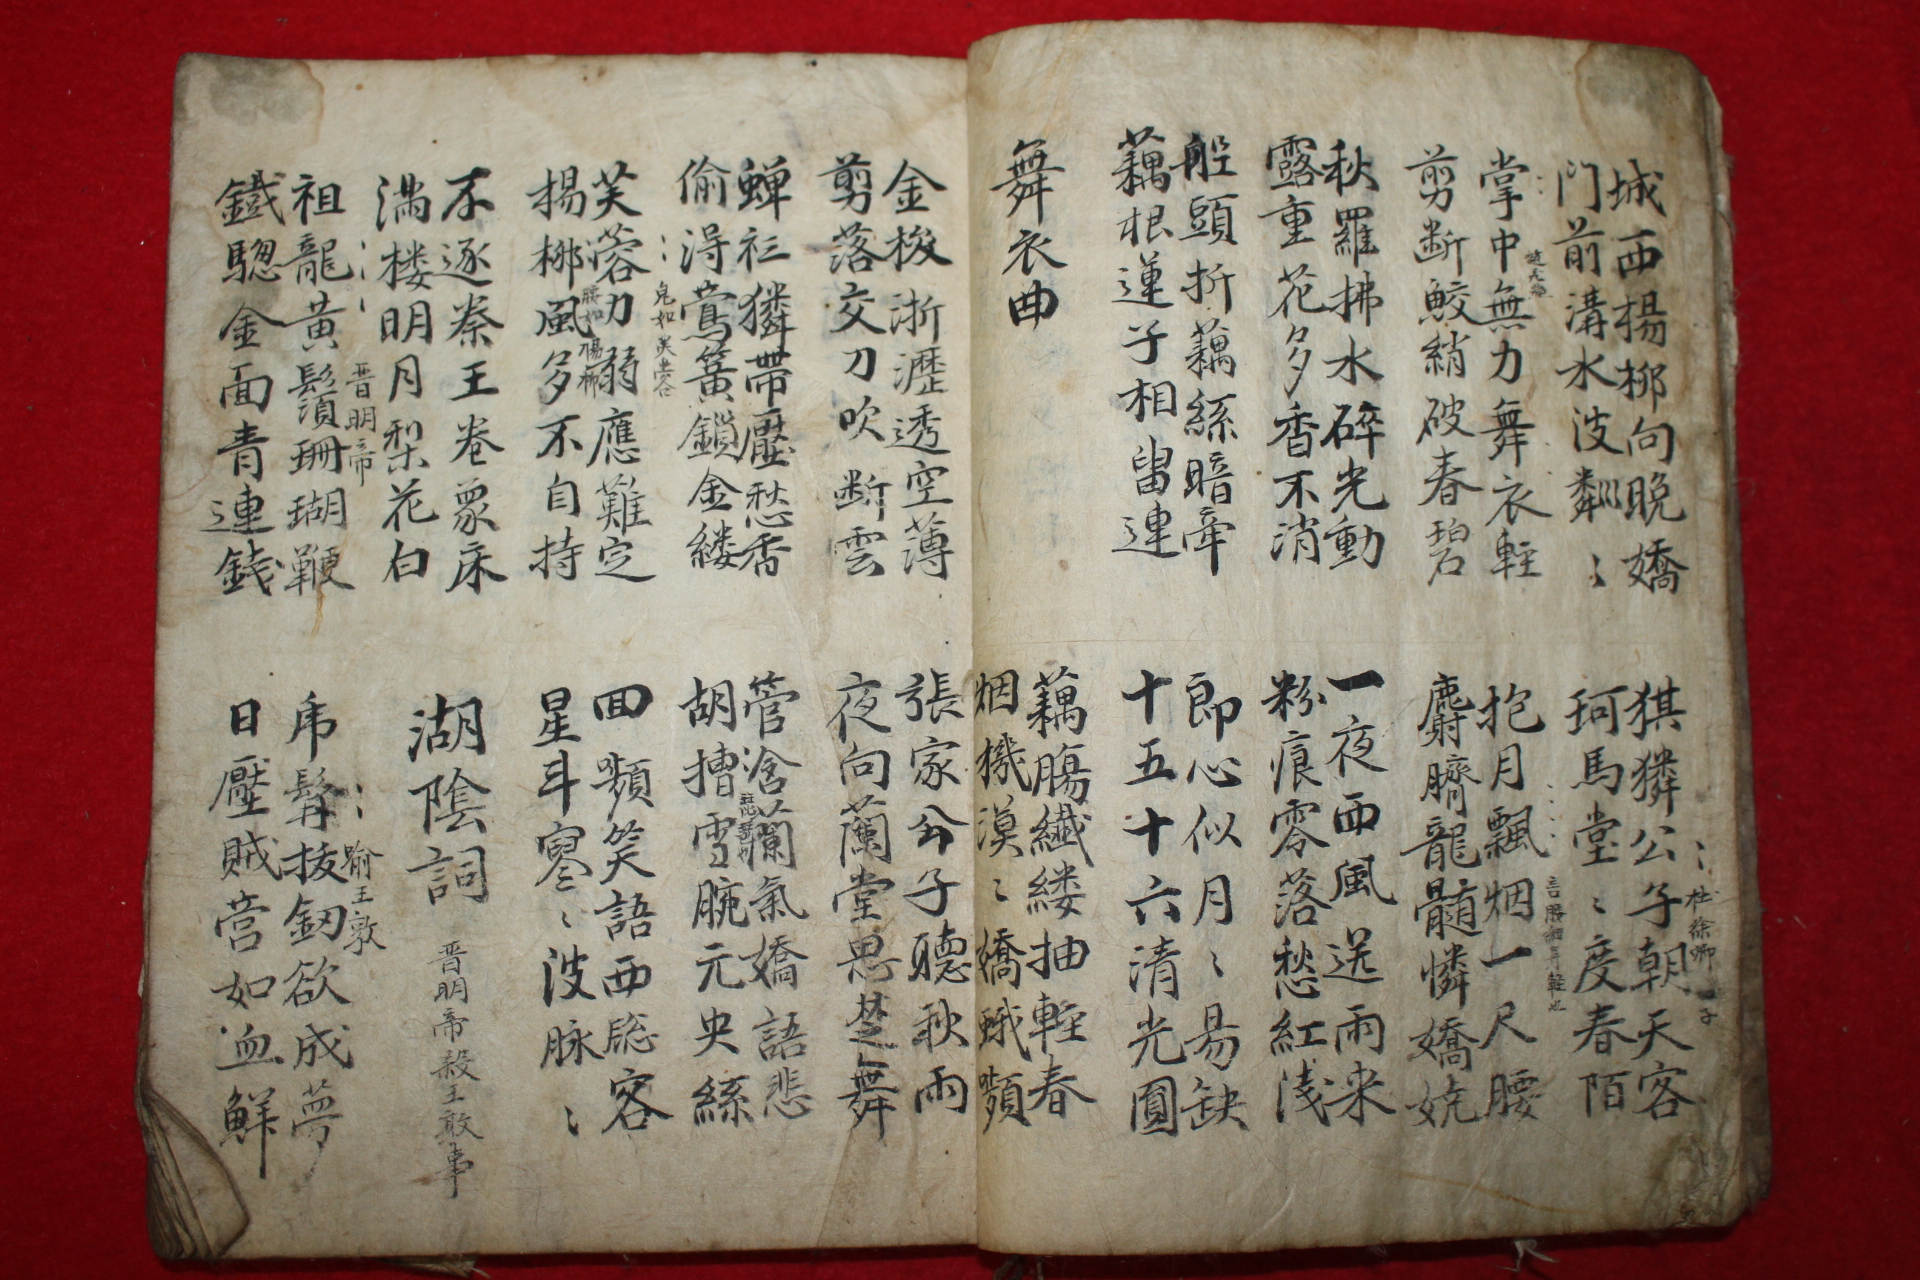 城西楊柳向晚嬌
門前溝水波粼〻
猉獜公子朝天客
珂馬堂〻度春陌
杜徐卿二子
掌中無力舞衣輊
剪断鮫綃破春碧
抱月飄烟一尺腰
麝臍龍髓憐嬌嬈
秋羅拂水碎光動
露重花多香不消
一夜西風送雨来
粉痕零落愁紅浅
舡頭折藕絲暗牽
藕根蓮子相畱連
郎心似月〻易缺
十五十六清光圓
舞衣曲
藕膓纎縷抽輊春
烟機漠〻嬌蛾嚬
金梭浙瀝透空薄
剪落交刀吹断雲
張家公子聽秋雨
夜向蘭堂思楚舞
蟬衫獜帶壓愁香
偷淂鶯簧鎖金縷
管含蘭氣嬌語悲
胡槽雪腕元央絲
芙蓉力弱應難定
皃如芙蓉
楊柳風多不自持
腰如楊柳
回嚬笑語西窓客
星斗寥〻波脉〻
不逐秦王卷象床
滿楼明月梨花白
湖陰詞
晋明帝殺王敦事
祖龍黃鬚珊瑚鞭
晋明帝
鐵驄金面青連錢
虎髯拔釰欲成夢
喻王敦
日壓賊营如血鮮